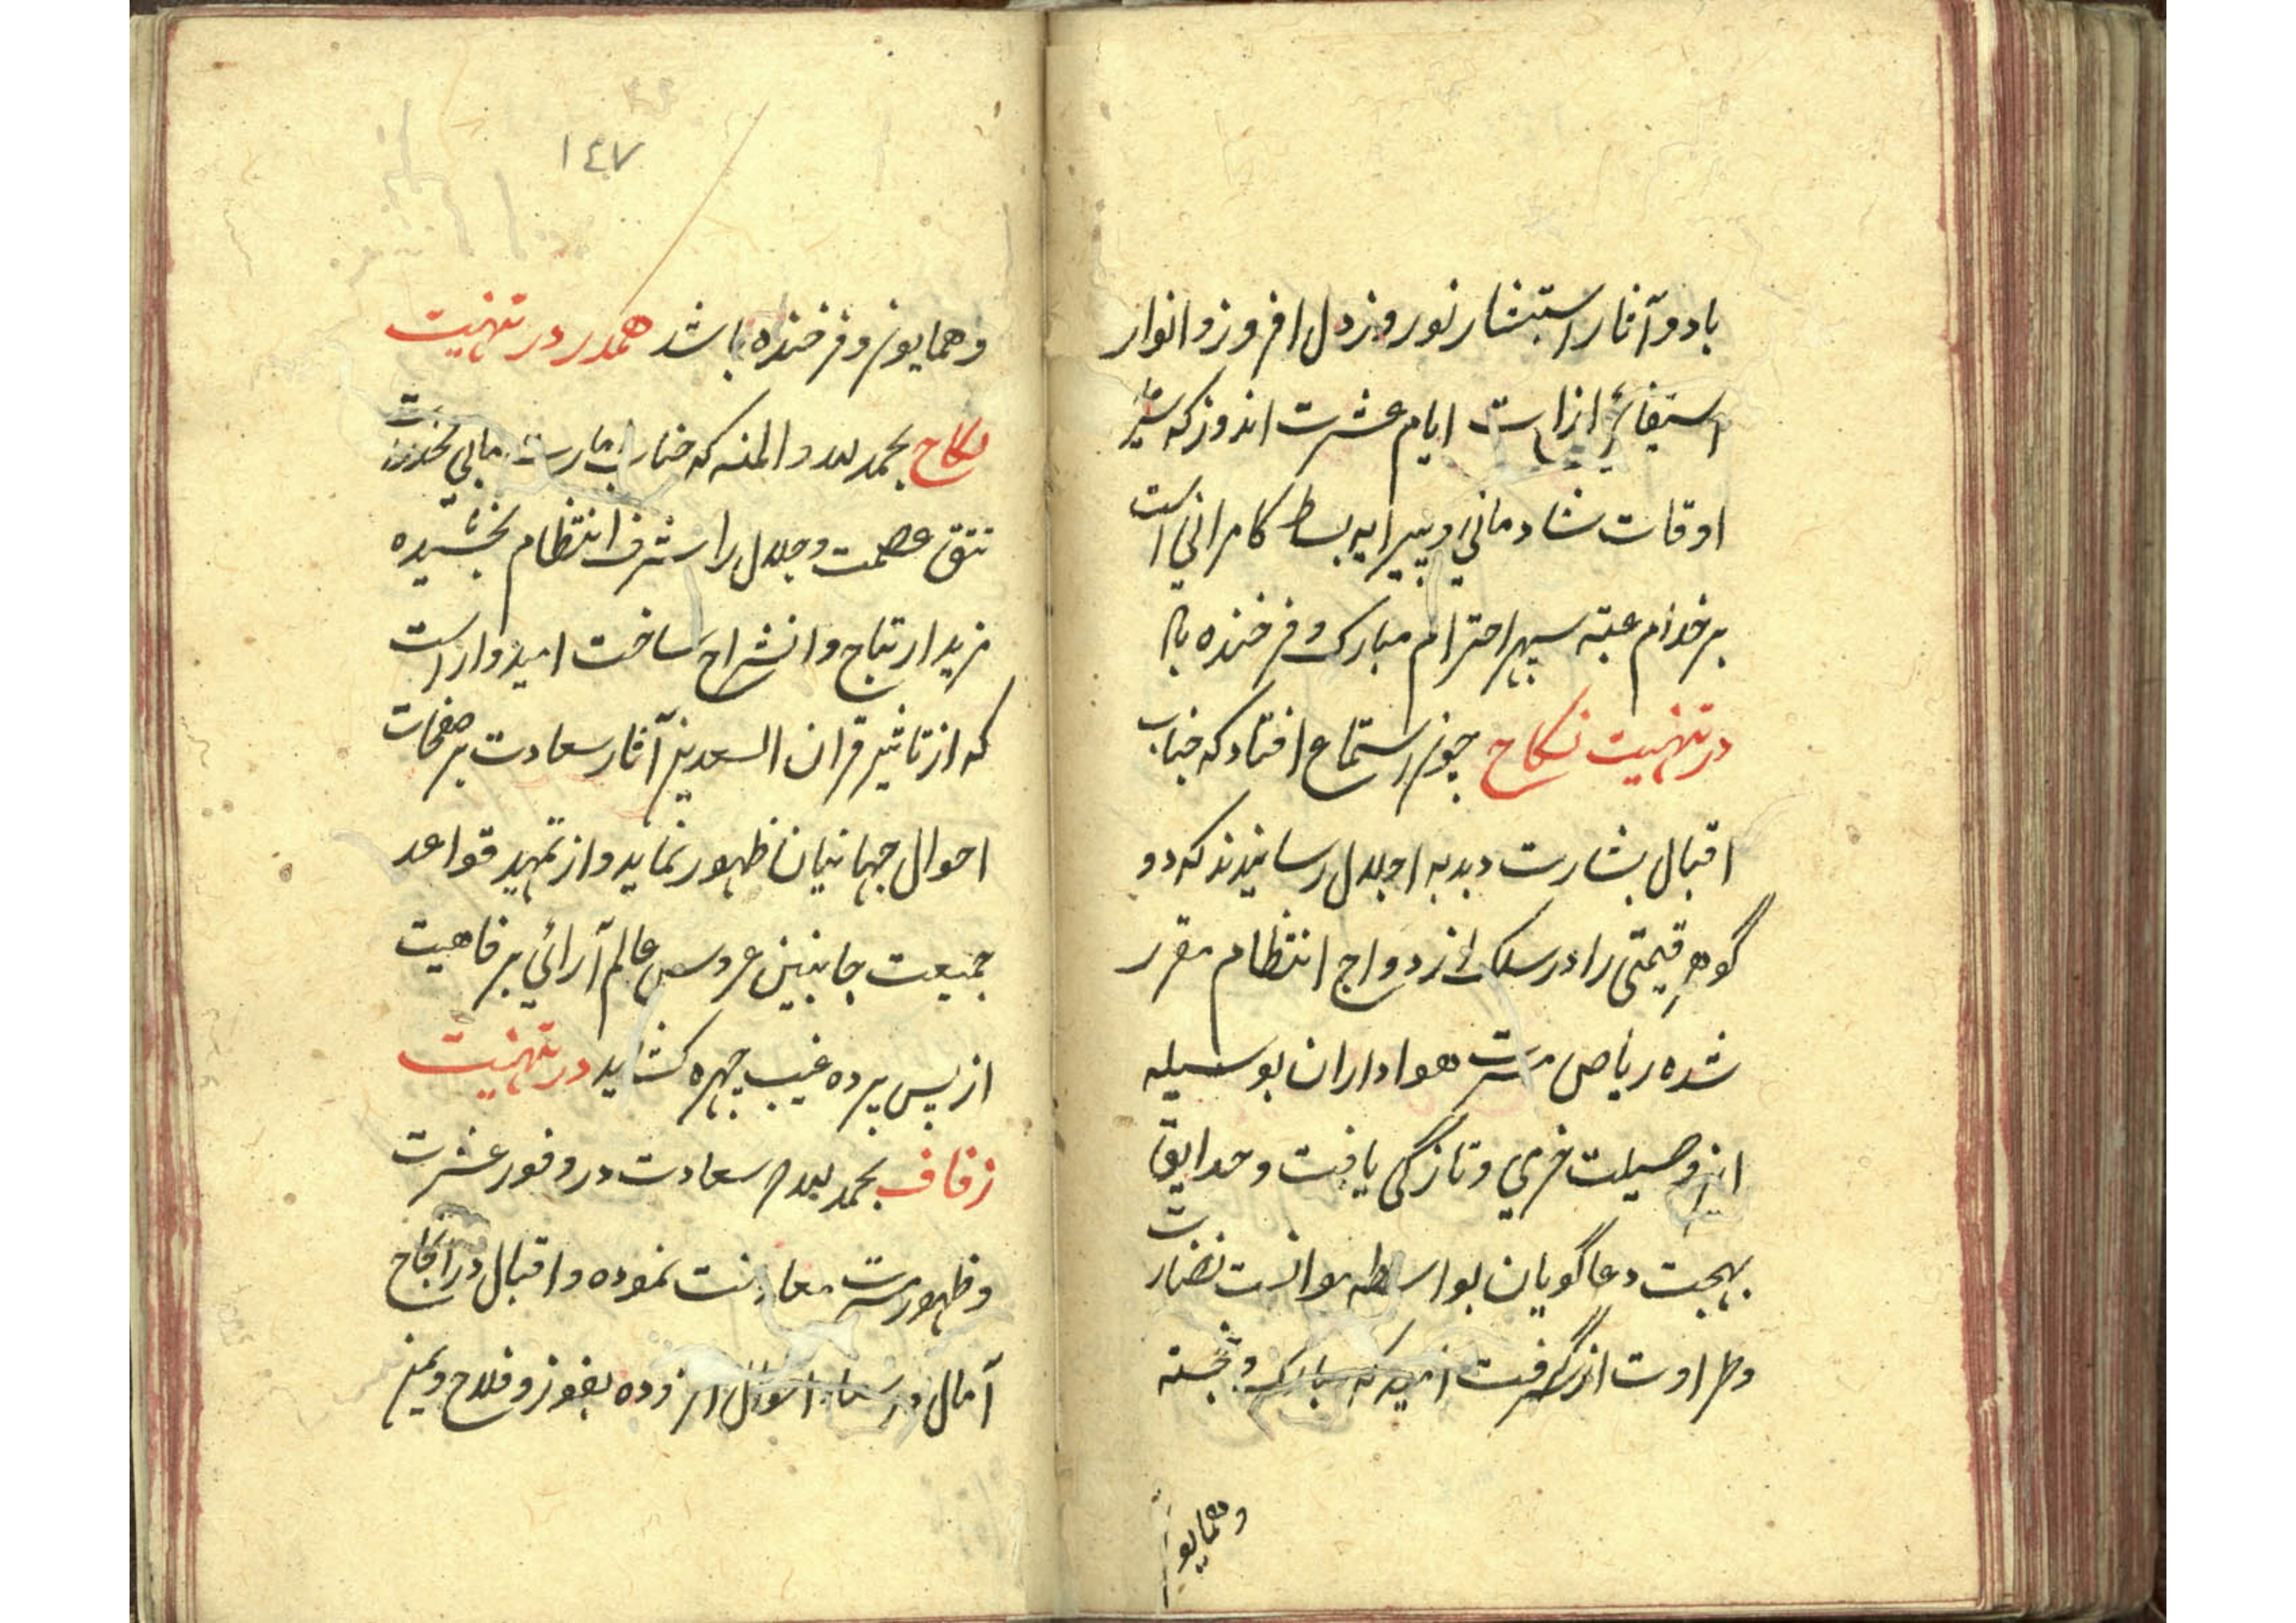 باد و آثار استبشار نوروز دل افروز و انوار
ایام عشرت اندوز که
اوقات شادمانی و پیرایه بساط کامرانی است
بر خدام عتبه سپهر احترام مبارک و فرخنده باد
در تهنیت نکاح چون استماع افتاد که جناب
اقبال بشارت دبدبه اجلال رسانیدند که دو
گوهر قیمتی را در سلک ازدواج انتظام مقرر
شده ریاض مسرت هواداران بوسیله
این وصیلت خرمی و تازگی یافت و حدایق
بهجت دعاگویان بواسطه موانست نضارت
وطراوت از گرفت امید که مبارک و خجسته
وهمایون
١٤٧
وهمایون و فرخنده باشد همدر در تهنیت
نکاح بحمد لله والمنه که جناب مابی مخدره
تتق عصمت و جلال را شرف انتظام بخشیده
مزید ارتیاح و انشراح ساخت امیدوار است
که از تاثیر قران السعدین آثار سعادت بر صفحات
احوال جهانیان ظهور نماید و از تمهید قواعد
جمیعت جانبین عروس عالم آرائی بر فاهیت
از پس پرده غیب چهره کشاید در تهنیت
زفاف بحمد لله سعادت در وفور عشرت
وظهور مسرت معاونت نموده و اقبال در انجاح
آمال افزوده بفوز و فلاح و یمن